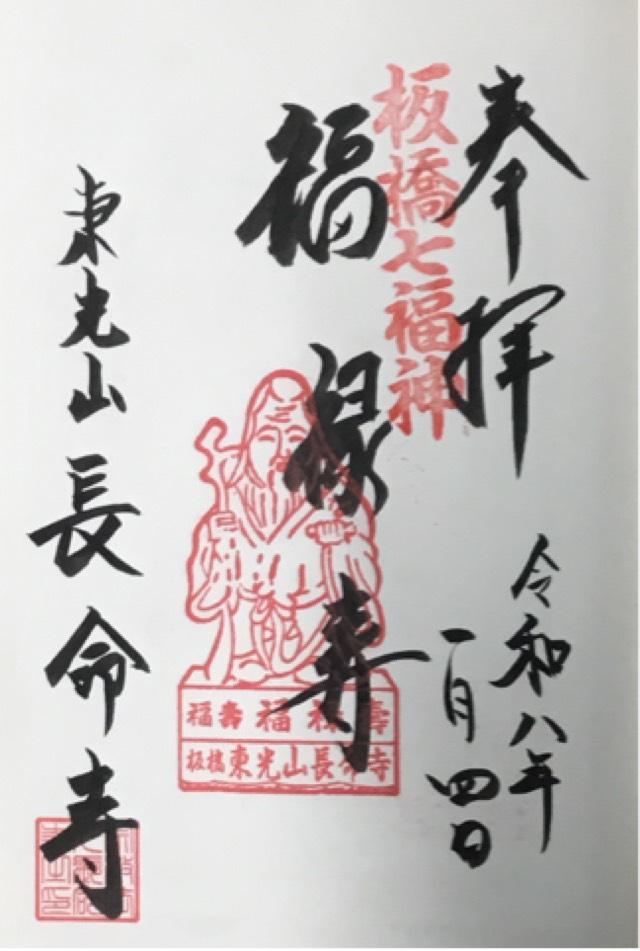 奉拝
令和八年
一月四日
板橋七福神
福禄寿
福寿 福禄壽
板橋東光山長命寺
東光山長命寺